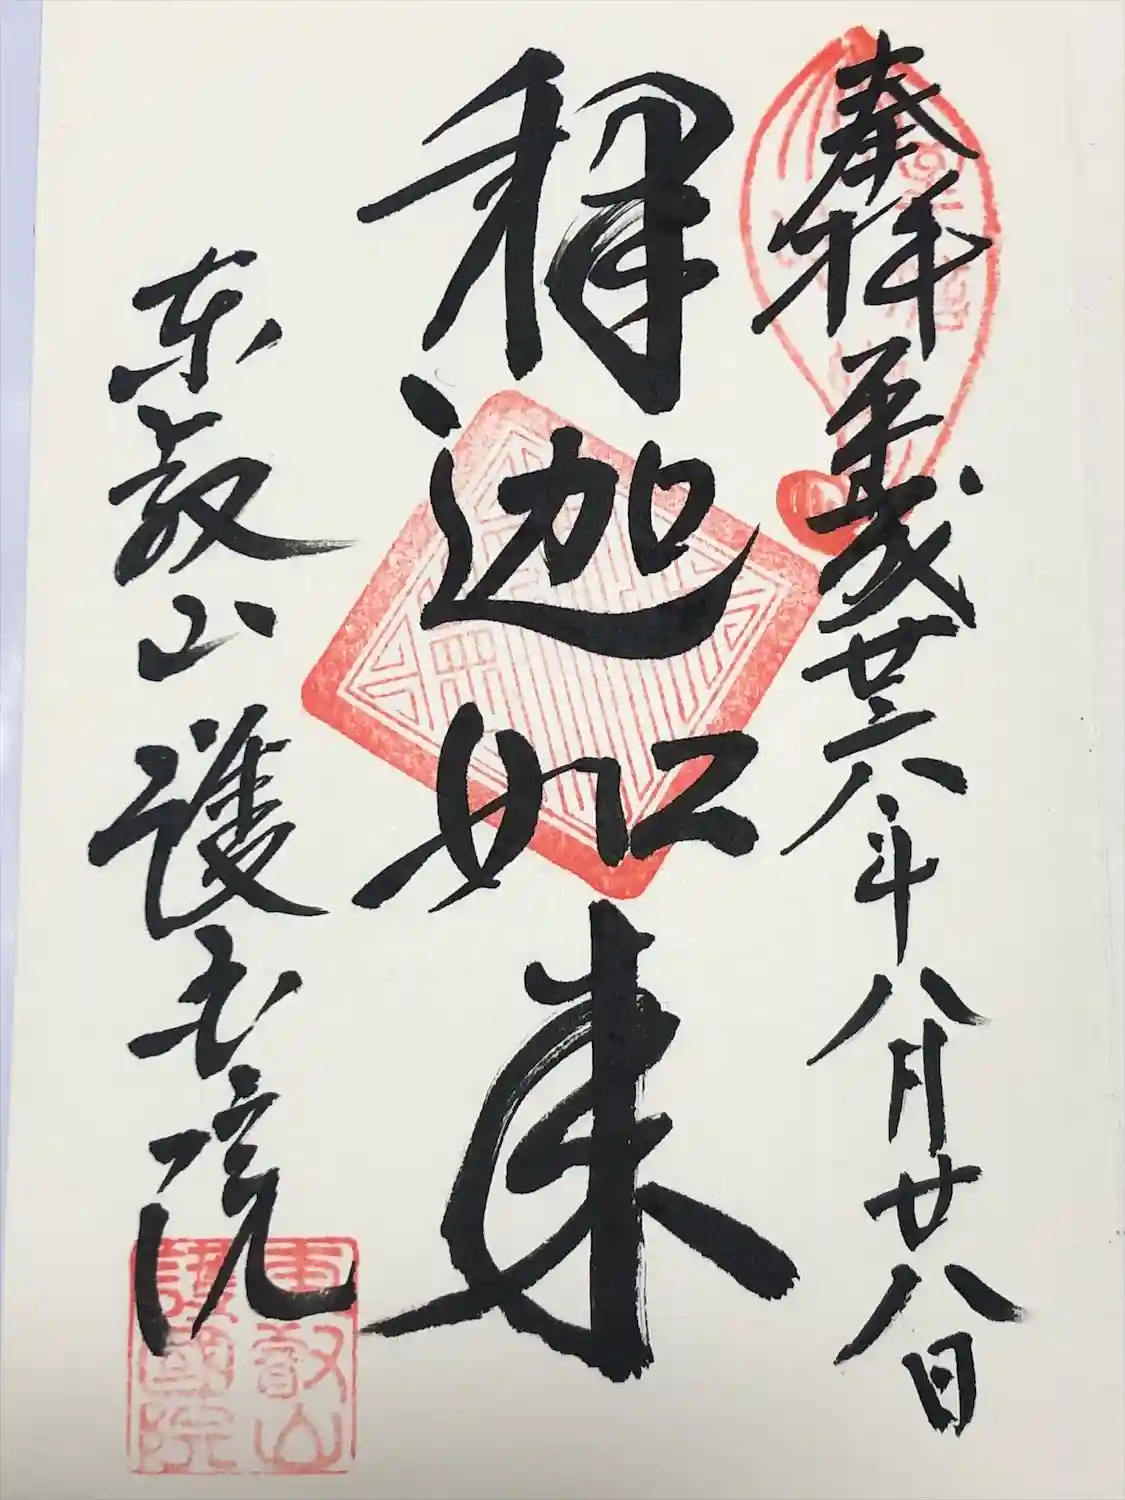 奉拝 平成廿六年八月廿八日
釋迦如来
東叡山 護國院
東叡山
護國院